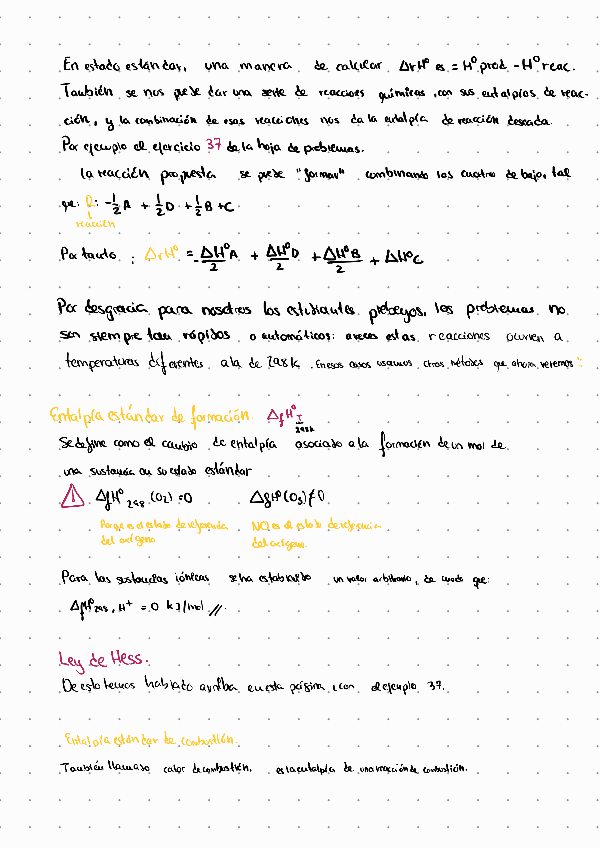 En estado estándar, una manera de calcular ΔrHº es = Hº prod - Hº reac.
También se nos puede dar una serie de reacciones químicas, con sus entalpías de reac-
ción, y la combinación de esas reacciones nos da la entalpía de reacción deseada.
Por ejemplo el ejercicio 37 de la hoja de problemas.
La reacción propuesta se puede "formar" combinando las cuatro de bajo, tal
que: R: -1/2 A + 1/2 D + 1/2 B + C
reacción
Por tanto: ΔrHº = -ΔHºA/2 + ΔHºD/2 + ΔHºB/2 + ΔHºC
Por desgracia para nosotros los estudiantes plebeyos, los problemas no
son siempre tan rápidos o automáticos: a veces estas reacciones ocurren a
temperaturas diferentes a la de 298k. En esos casos usamos otros métodos que ahora veremos
Entalpía estándar de formación. ΔfHº I
298k
Se define como el cambio de entalpía asociado a la formación de un mol de
una sustancia en su estado estándar
ΔfHº 298 (O2) = 0 ΔfHº (O3) ≠ 0
Porque es el estado de referencia NO es el estado de referencia
del oxígeno del oxígeno.
Para las sustancias iónicas se ha establecido un valor arbitrario, de modo que:
ΔfHº298, H+ = 0 kJ/mol //.
Ley de Hess.
De esto hemos hablado arriba en esta página, con el ejemplo 37.
Entalpía estándar de combustión.
También llamaso calor de combustión, es la entalpía de una reacción de combustión.